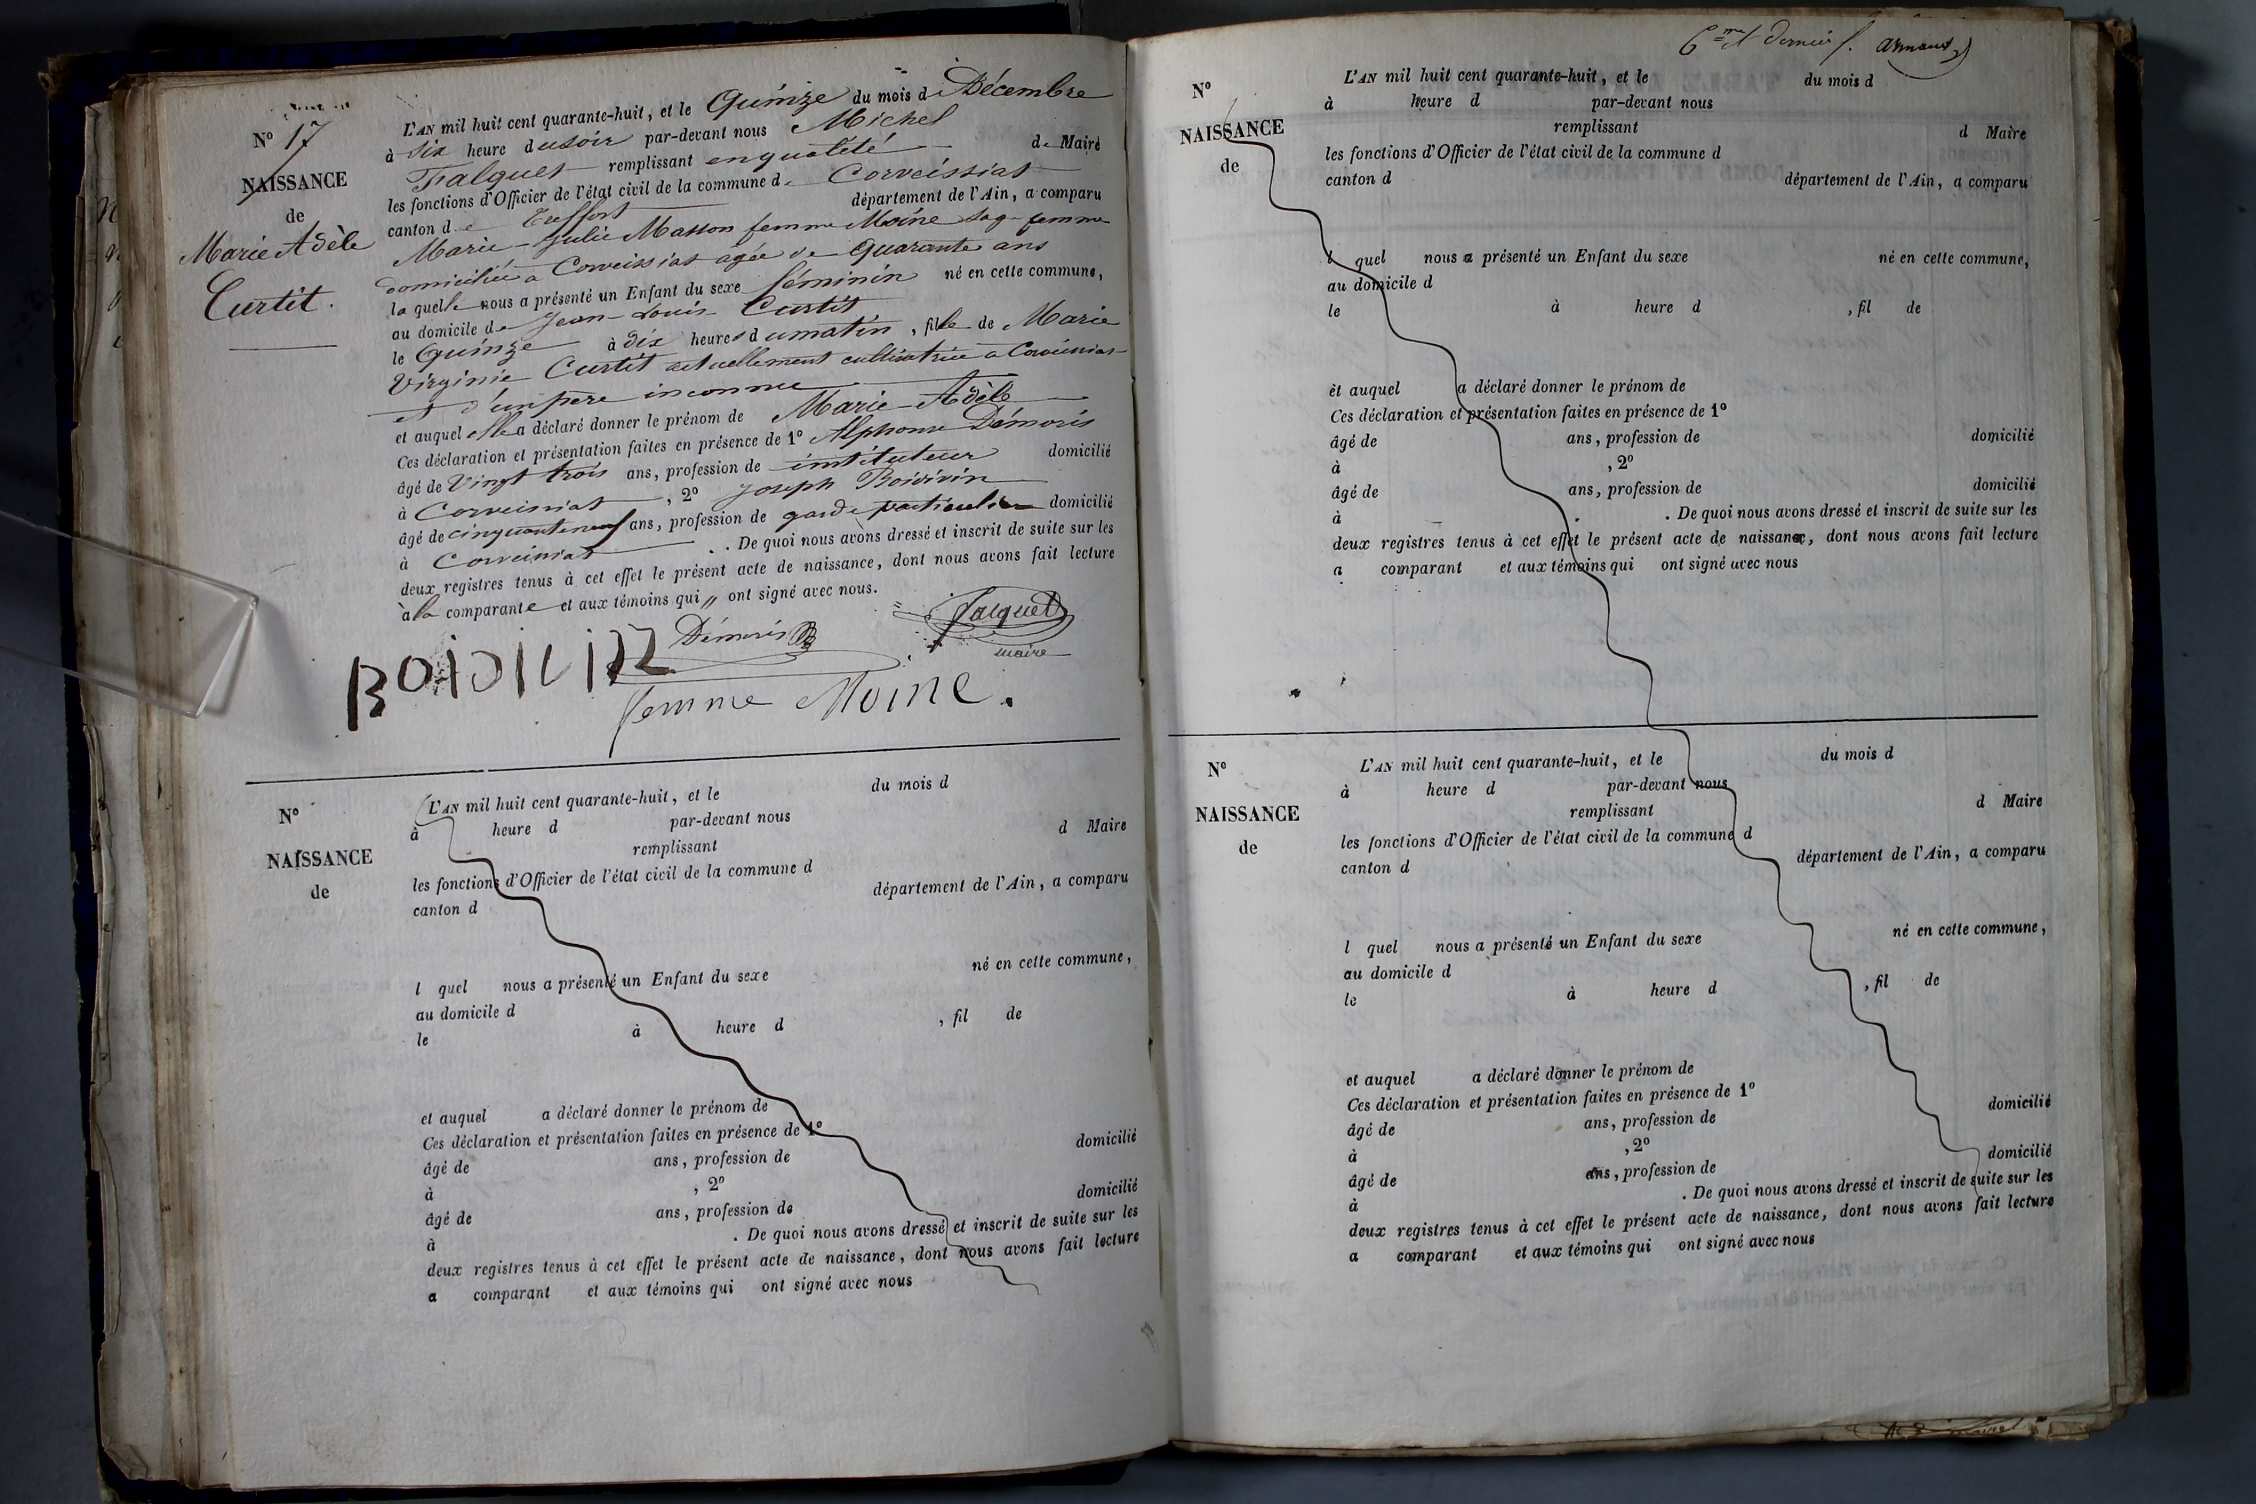 N° 17
NAISSANCE
de
Marie Adèle
Curtit.
L'AN mil huit cent quarante-huit, et le Quinze du mois d Décembre
à six heure du soir par-devant nous Michel
Falquet remplissant en qualité de Maire
les fonctions d'Officier de l'état civil de la commune de Corveissiat
canton de Treffort département de l'Ain, a comparu
Marie-Julie Masson femme Moine sage femme
domiciliée a Corveissiat agée de quarante ans
laquelle nous a présenté un Enfant du sexe féminin né en cette commune,
au domicile de Jean-Louis Curtit
le Quinze à dix heures du matin, fille de Marie
Virginie Curtit actuellement cultivatrice a Corveissiat
et d'un père inconnu
et auquel elle a déclaré donner le prénom de Marie-Adèle
Ces déclaration et présentation faites en présence de 1° Alphonse Démoris
âgé de Vingt trois ans, profession de instituteur domicilié
à Corveissiat, 2° Joseph Boivivin
âgé de cinquante neuf ans, profession de garde particulier domicilié
à Corveissiat. De quoi nous avons dressé et inscrit de suite sur les
deux registres tenus à cet effet le présent acte de naissance, dont nous avons fait lecture
à la comparante et aux témoins qui ont signé avec nous.
Démoris
Falquet
maire
femme Moine.
N°
NAISSANCE
de
L'AN mil huit cent quarante-huit, et le du mois d
à heure d par-devant nous
remplissant d Maire
les fonctions d'Officier de l'état civil de la commune d
canton d département de l'Ain, a comparu
l quel nous a présenté un Enfant du sexe né en cette commune,
au domicile d
le à heure d , fil de
et auquel a déclaré donner le prénom de
Ces déclaration et présentation faites en présence de 1°
âgé de ans, profession de domicilié
à , 2°
âgé de ans, profession de domicilié
à . De quoi nous avons dressé et inscrit de suite sur les
deux registres tenus à cet effet le présent acte de naissance, dont nous avons fait lecture
a comparant et aux témoins qui ont signé avec nous
6me et dernier f. Armand
N°
NAISSANCE
de
L'AN mil huit cent quarante-huit, et le du mois d
à heure d par-devant nous
remplissant d Maire
les fonctions d'Officier de l'état civil de la commune d
canton d département de l'Ain, a comparu
l quel nous a présenté un Enfant du sexe né en cette commune,
au domicile d
le à heure d , fil de
èt auquel a déclaré donner le prénom de
Ces déclaration et présentation faites en présence de 1°
âgé de ans, profession de domicilié
à , 2°
âgé de ans, profession de domicilié
à . De quoi nous avons dressé et inscrit de suite sur les
deux registres tenus à cet effet le présent acte de naissance, dont nous avons fait lecture
a comparant et aux témoins qui ont signé avec nous
N°
NAISSANCE
de
L'AN mil huit cent quarante-huit, et le du mois d
à heure d par-devant nous
remplissant d Maire
les fonctions d'Officier de l'état civil de la commune d
canton d département de l'Ain, a comparu
l quel nous a présenté un Enfant du sexe né en cette commune,
au domicile d
le à heure d , fil de
et auquel a déclaré donner le prénom de
Ces déclaration et présentation faites en présence de 1°
âgé de ans, profession de domicilié
à , 2°
âgé de ans, profession de domicilié
à . De quoi nous avons dressé et inscrit de suite sur les
deux registres tenus à cet effet le présent acte de naissance, dont nous avons fait lecture
a comparant et aux témoins qui ont signé avec nous